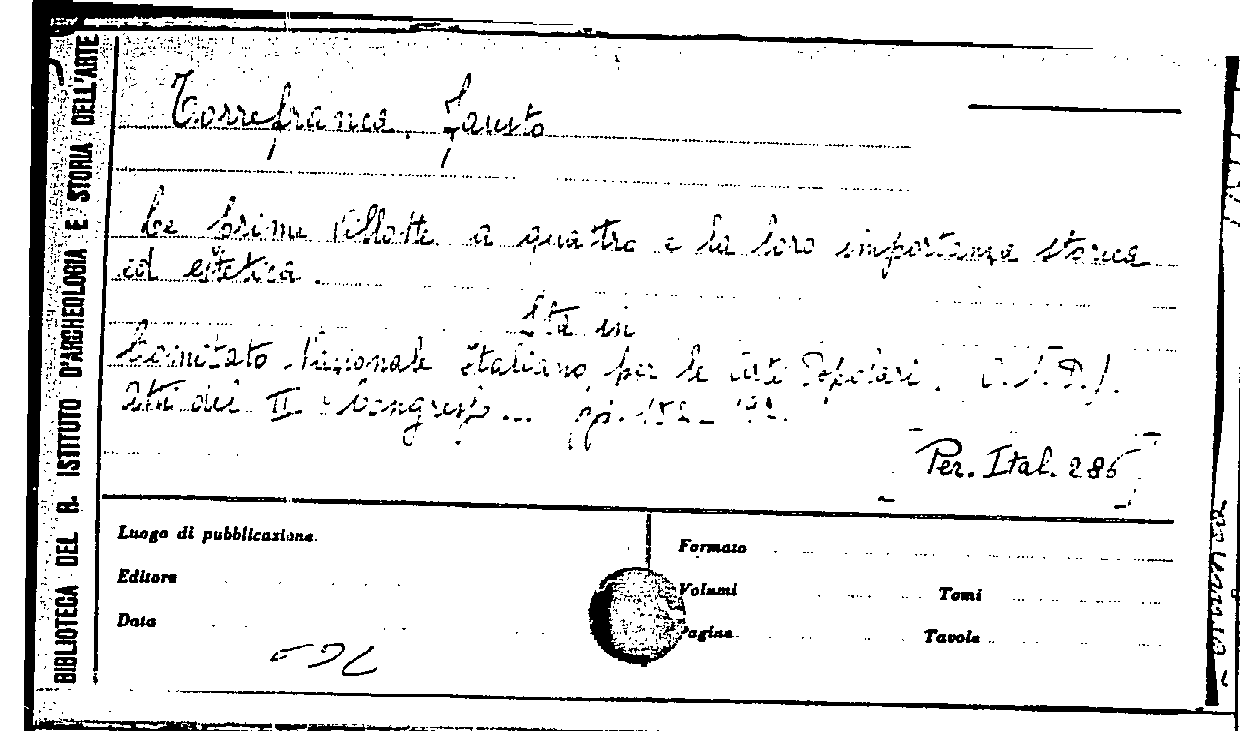 BIBLIOTECA DEL R. ISTITUTO D'ARCHEOLOGIA E STORIA DELL'ARTE
Torrefranca, Fausto
Le prime villotte a quattro e la loro importanza storica
ed estetica.
Sta in
Comitato Nazionale Italiano per le Arti Popolari.
Atti del II Congresso... pp.
Per. Ital. 286
Luogo di pubblicazione.
Formato
Editore
Volumi
Tomi
Data
Pagine
Tavole